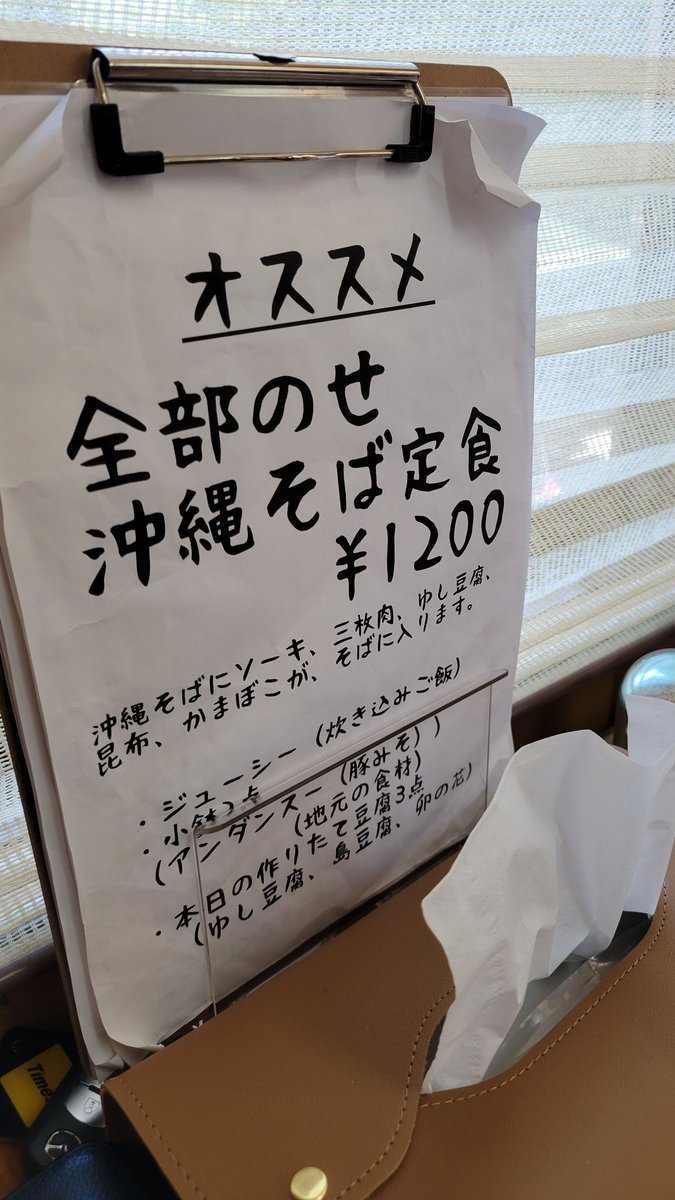 オススメ
全部のせ
沖縄そば定食
¥1200
沖縄そばにソーキ、三枚肉、ゆし豆腐、
昆布、かまぼこが、そばに入ります。
・ジューシー(炊き込みご飯)
・小鉢2点
(アンダンスー(豚みそ))
(地元の食材)
・本日の作りたて豆腐3点
(ゆし豆腐、島豆腐、卯の花)
Time